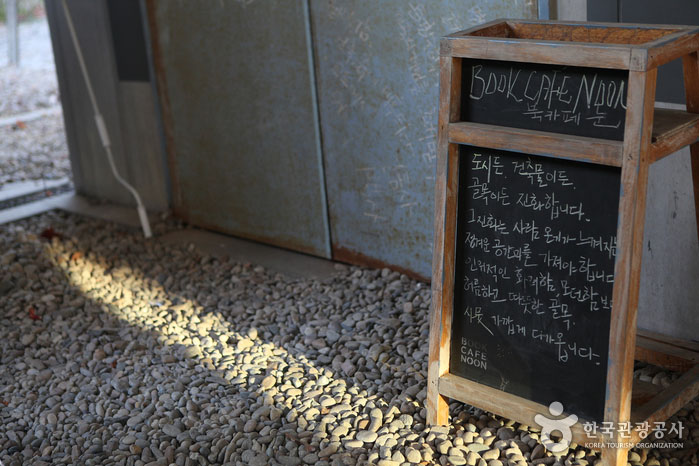 BOOK CAFE NOON
북카페 눈
도시든. 건축물이든.
골목이든 진화합니다.
그 진화는 사람 온기가 느껴지는
정겨운 공간과를 가져야 합니다
인위적인 화려함. 모던함 보
허름하고 따뜻한 골목.
사뭇 가깝게 다가옵니다.
BOOK
CAFE
NOON
한국관광공사
KOREA TOURISM ORGANIZATION